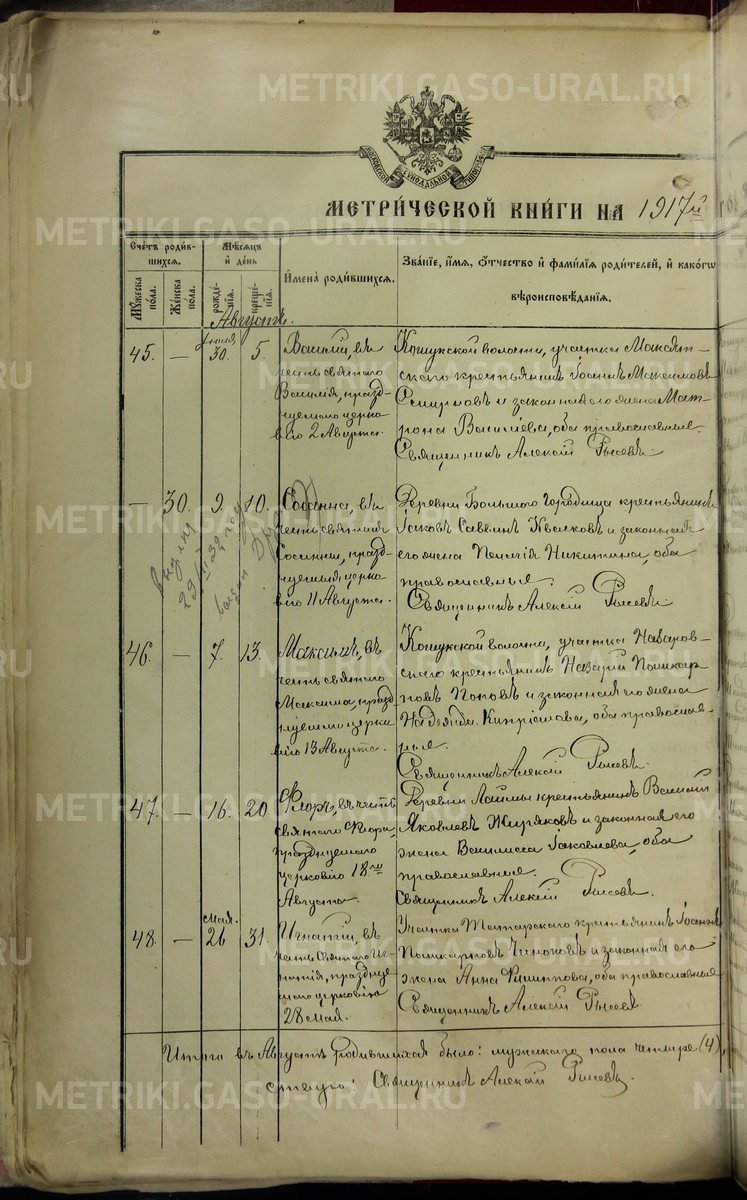 METRIKI.GASO-URAL.RU
МОСКОВСКОЙ СѴНОДАЛЬНОЙ ТИПОГРАФІИ
МЕТРИ́ЧЕСКОЙ КНИ́ГИ НА 1917й
Сче́тъ роди́в-
шихся.
Му́жеска по́ла.
Же́нска по́ла.
Мѣ́сяцъ
и҆ де́нь
рожде́-
нїѧ.
креще́-
нїѧ.
И҆мена̀ роди́вшихся.
Зва́нїе, и҆́мя, ѻ҆́тчество и҆ фами́лїѧ роди́телей, и҆ како́гѡ
вѣроисповѣ́данїѧ.
Августъ.
45. — Іюля 30. 5. Василій, въ
честь святаго
Василія, празд-
нуемаго церко-
вію 2 Августа.
Кошукской волости, участка Максят-
скаго крестьянинъ Іоаннъ Максимовъ
Смирновъ и законная его жена Мат-
рона Васильева, оба православные.
Священникъ Алексій Рысевъ.
— 30. 9. 10. Сосанна, въ
честь святыя
Сосанны, празд-
нуемыя церко-
вію 11 Августа.
Деревни Большого Городища крестьянинъ
Іаковъ Саввинъ и законная
его жена Пелагія Никитина, оба
православные.
Священникъ Алексій Рысевъ.
46. — 7. 13. Максимъ, въ
честь святаго
Максима, празд-
нуемаго церко-
вію 13 Августа.
Кошукской волости, участка Назаров-
скаго крестьянинъ Назарій Поликар-
повъ Поповъ и законная его жена
Надежда Кипріянова, оба православ-
ные.
Священникъ Алексій Рысевъ.
47. — 16. 20 Флоръ, въ честь
святаго Флора,
празднуемаго
церковію 18го
Августа.
Деревни Лаймы крестьянинъ Василій
Яковлевъ Жиряковъ и законная его
жена Василиса Іаковлева, оба
православные.
Священникъ Алексій Рысевъ.
48. — мая. 26 31. Игнатій, въ
честь Святаго Иг-
натія, праздну-
емаго церковію
28 мая.
Участка Татарскаго крестьянинъ Іоаннъ
Поликарповъ и законная его
жена Анна Филиппова, оба православные
Священникъ Алексій Рысевъ.
Итого въ Августѣ родившихся было: мужскаго пола четыре (4),
Священникъ Алексій Рысевъ.